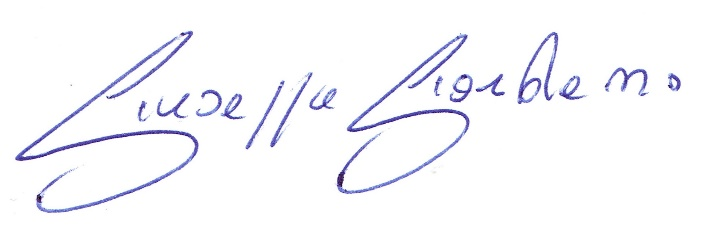 Giuseppe Giordano